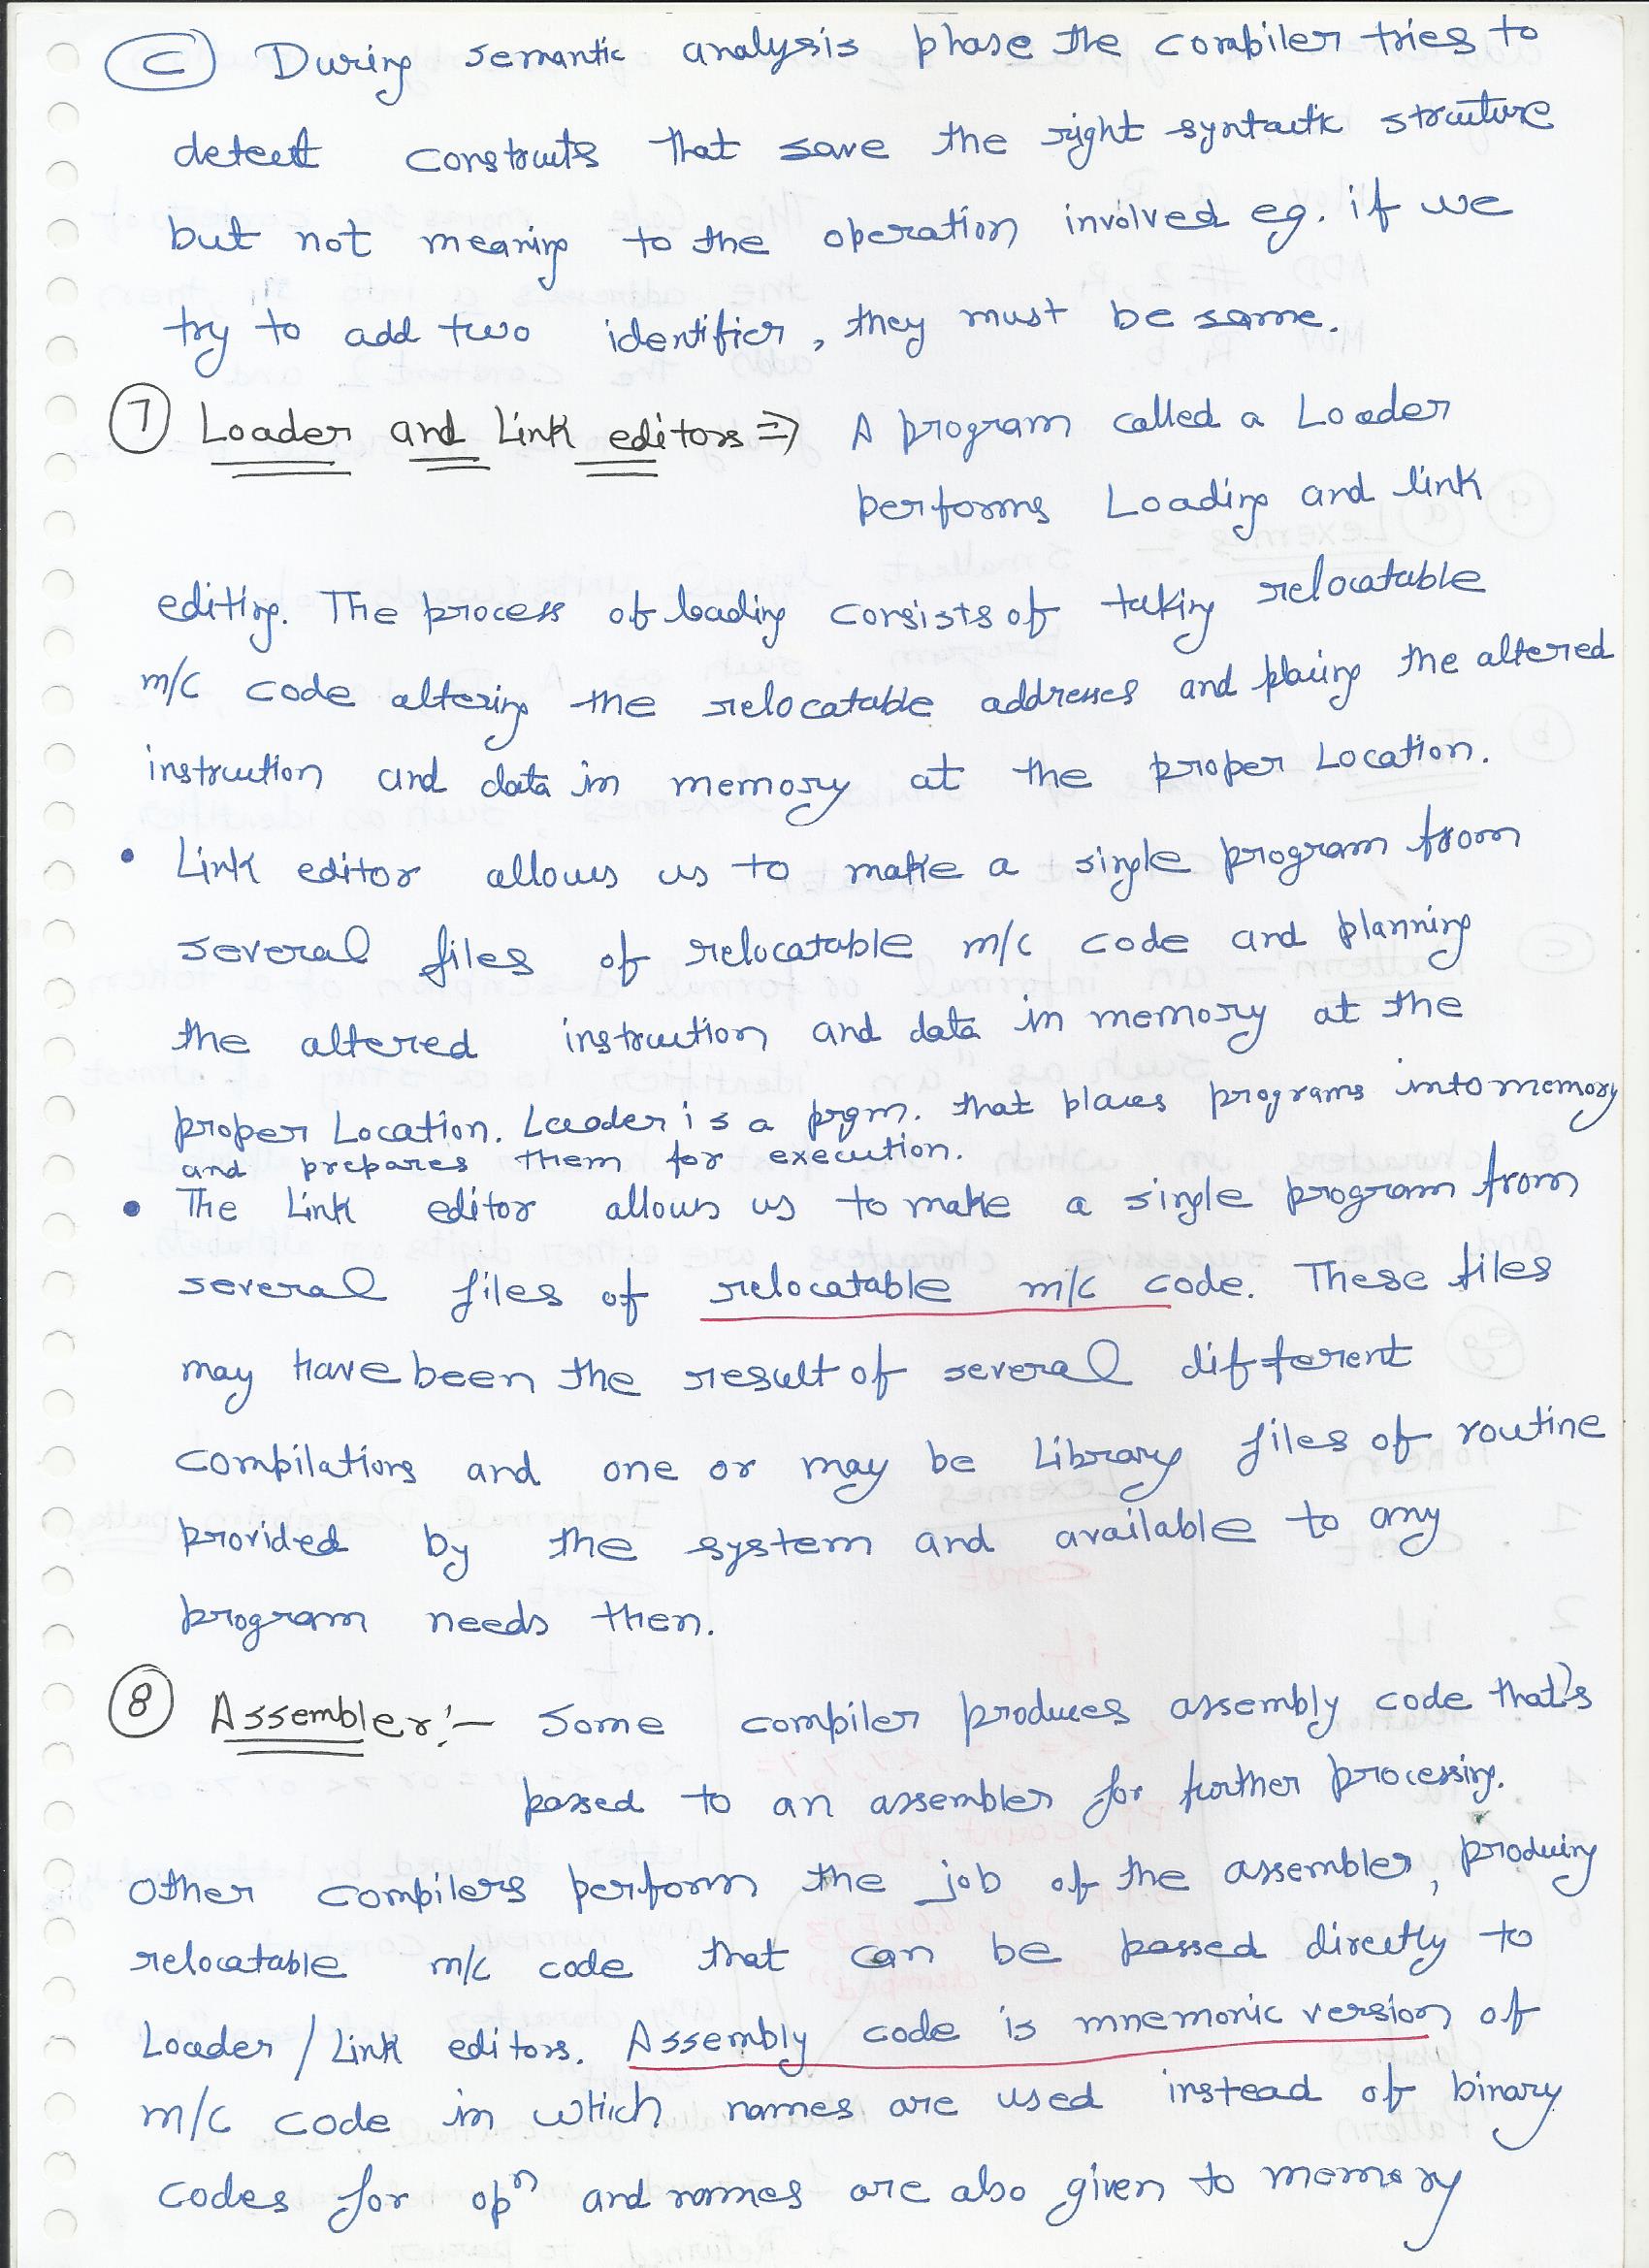 C During semantic analysis phase the compiler tries to
detect constructs that save the right syntactic structure
but not meaning to the operation involved eg. if we
try to add two identifier, they must be same.
7 Loader and Link editors ⇒ A program called a Loader
performs Loading and link
editing. The process of loading consists of taking relocatable
m/c code altering the relocatable addresses and placing the altered
instruction and data in memory at the proper Location.
• Link editor allows us to make a single program from
several files of relocatable m/c code and planning
the altered instruction and data in memory at the
proper Location. Loader is a prgm. that places programs into memory
and prepares them for execution.
• The Link editor allows us to make a single program from
several files of relocatable m/c code. These files
may have been the result of several different
compilations and one or may be Library files of routine
provided by the system and available to any
program needs then.
8 Assembler:- Some compiler produces assembly code that's
passed to an assembler for further processing.
Other compilers perform the job of the assembler, producing
relocatable m/c code that can be passed directly to
Loader/Link editors. Assembly code is mnemonic version of
m/c code in which names are used instead of binary
codes for opⁿ and names are also given to memory